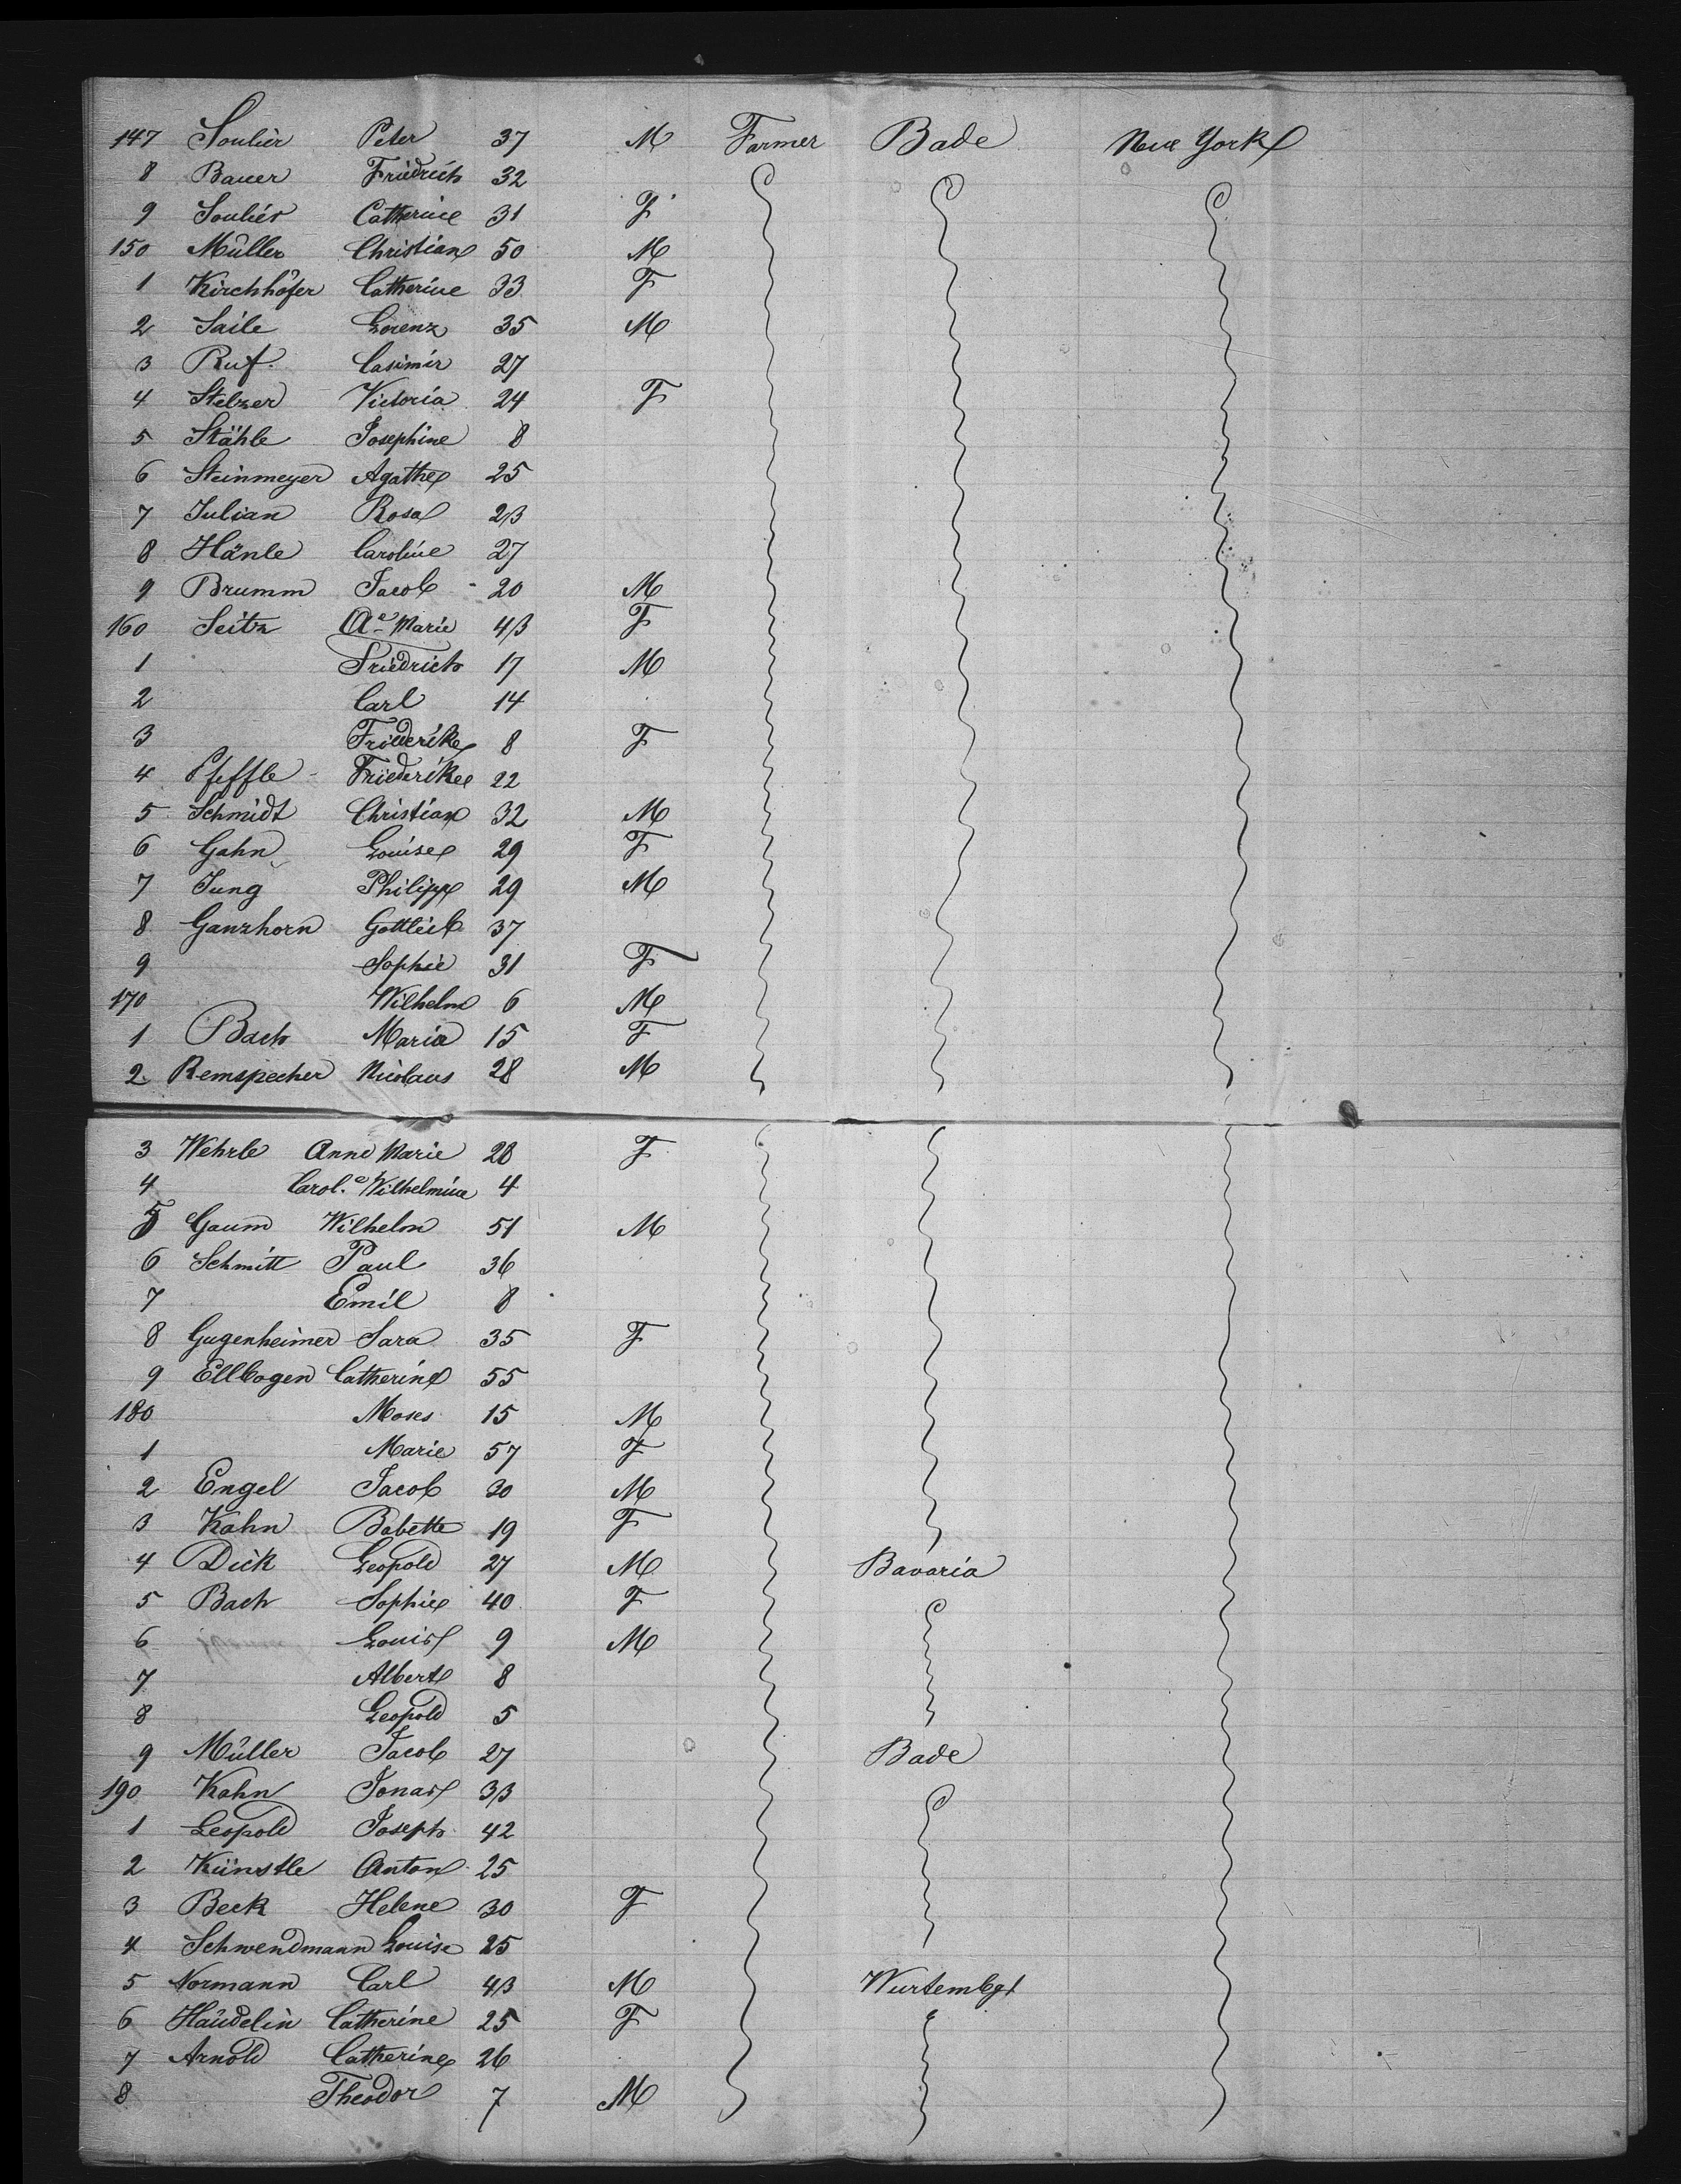 147 Soulier Peter 37 M Farmer Bade New York
8 Bauer Friedrich 32
9 Soulier Catherine 31 F
150 Müller Christian 50 M
1 Kirchhöfer Catherine 33 F
2 Saile Lorenz 35 M
3 Ruf. Casimir 27
4 Stelzer Victoria 24 F
5 Stähle Josephine 8
6 Steinmeyer Agathe 25
7 Julian Rosa 23
8 Hänle Caroline 27
9 Brumm Jacob - 20 M
160 Seitz Aᵉ Marie 43 F
1 Friedrich 17 M
2 Carl 14
3 Friederike 8 F
4 Pfeffle - Friederike 22
5 Schmidt Christian 32 M
6 Gahn Louise 29 F
7 Jung Philipp 29 M
8 Ganzhorn Gottleib 37
9 Sophie 31 F
170 Wilhelm 6 M
1 Bach Maria 15 F
2 Remspecher Nicolaus 28 M
3 Wehrle Anne Marie 28 F
4 Carol.ᵉ Wilhelmine 4
5 Gaum Wilhelm 51 M
6 Schmitt Paul 36
7 Emil 8
8 Gugenheimer Sara 35 F
9 Ellbogen Catherine 55
180 Moses 15 M
1 Marie 57 F
2 Engel Jacob 30 M
3 Kahn Babette 19 F
4 Dick Leopold 27 M Bavaria
5 Bach Sophie 40 F
6 Louis 9 M
7 Albert 8
8 Leopold 5
9 Müller Jacob 27 Bade
190 Kahn Jonas 33
1 Leopold Joseph 42
2 Künstle Anton 25
3 Beck Helene 30 F
4 Schwendmann Louise 25
5 Normann Carl 43 M Wurtembgt
6 Häudelin Catherine 25 F
7 Arnold Catherine 26
8 Theodor 7 M